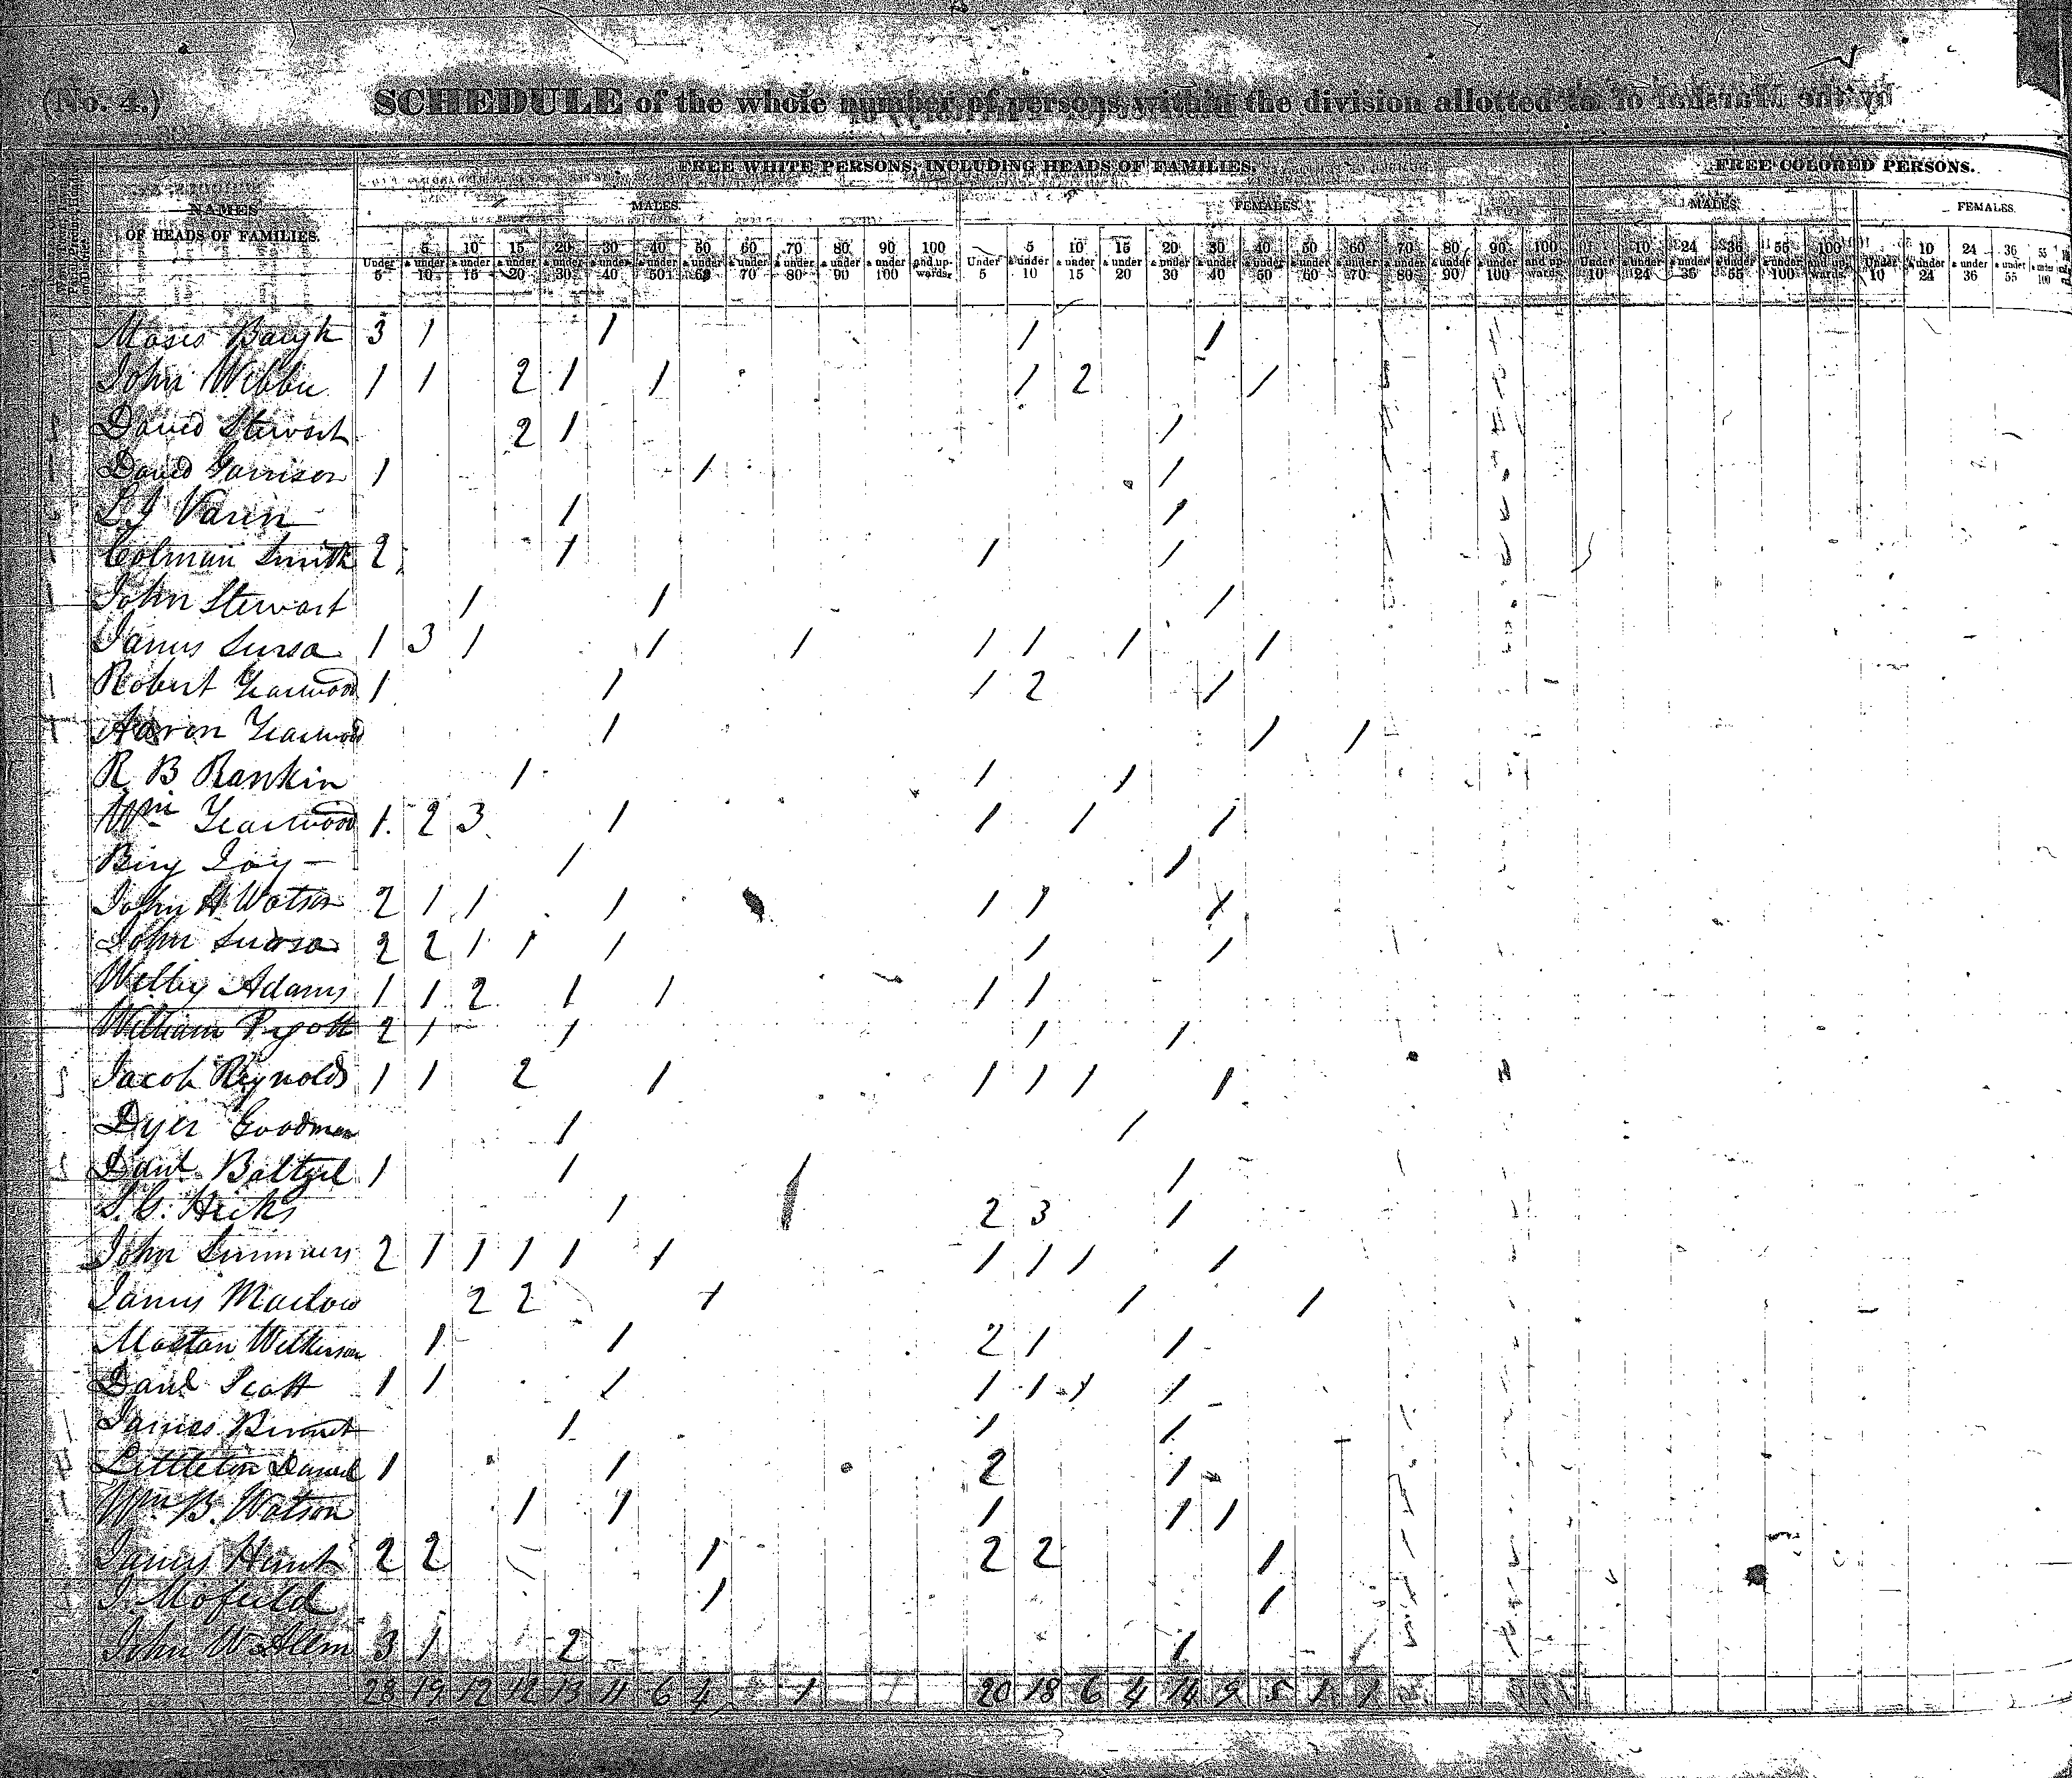 (No. 4.) SCHEDULE of the whole number of persons within the division allotted to
FREE WHITE PERSONS, INCLUDING HEADS OF FAMILIES. FREE COLORED PERSONS.
NAMES OF HEADS OF FAMILIES. MALES. FEMALES. MALES. FEMALES.
Under 5 5 & under 10 10 & under 15 15 & under 20 20 & under 30 30 & under 40 40 & under 50 50 & under 60 60 & under 70 70 & under 80 80 & under 90 90 & under 100 100 and upwards. Under 5 5 & under 10 10 & under 15 15 & under 20 20 & under 30 30 & under 40 40 & under 50 50 & under 60 60 & under 70 70 & under 80 80 & under 90 90 & under 100 100 and upwards. Under 10 10 & under 24 24 & under 36 36 & under 55 55 & under 100 100 and upwards. Under 10 10 & under 24 24 & under 36 36 & under 55 55 & under 100
Moses Baugh 3 1 1 1 1
John Webbe 1 1 2 1 1 1 2 1
David Stewart 2 1 1
David Garrison 1 1 1
L J Varin 1 1
Colman Smith 2 1 1 1
John Stewart 1 1 1
James Sursa 1 3 1 1 1 1 1 1 1
Robert Yearwood 1 1 1 2 1
Aaron Yearwood 1 1 1
R B Rankin 1 1 1
Wm Yearwood 1 2 3 1 1 1 1
Joy 1 1
John H Watson 2 1 1 1 1 1 1
John Sursa 2 2 1 1 1 1 1
Welby Adams 1 1 2 1 1 1 1
William Pigott 2 1 1 1 1
Jacob Reynolds 1 1 2 1 1 1 1 1
Dyer Goodman 1 1
Danl Baltzel 1 1 1
S. C. Hicks 1 2 3 1
John Summers 2 1 1 1 1 1 1 1 1 1
James Marlow 2 2 1 1 1
Mastan Wilkerson 1 1 2 1 1
Danl Scott 1 1 1 1 1 1 1
James 1 1 1
Littleton Daniel 1 1 2 1
Wm B. Watson 1 1 1 1 1
James Hunt 2 2 1 2 2 1
J Mofield 1 1
John W Allen 3 1 2 1
28 19 12 12 13 11 6 4 1 20 18 6 4 14 9 5 1 1